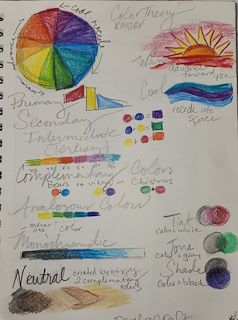 Color Theory
REVIEW
Cool
Warm
advance
toward you
Cool
recede into
space
Primary
Secondary
Intermediate
(Tertiary)
Complementary Colors
Bears vs vikings Christmas
Analogous Colors
color
Monochromatic
Neutral created by mixing
2 complementary
colors
Tint
color + white
Tone
color + gray
Shade
color + black